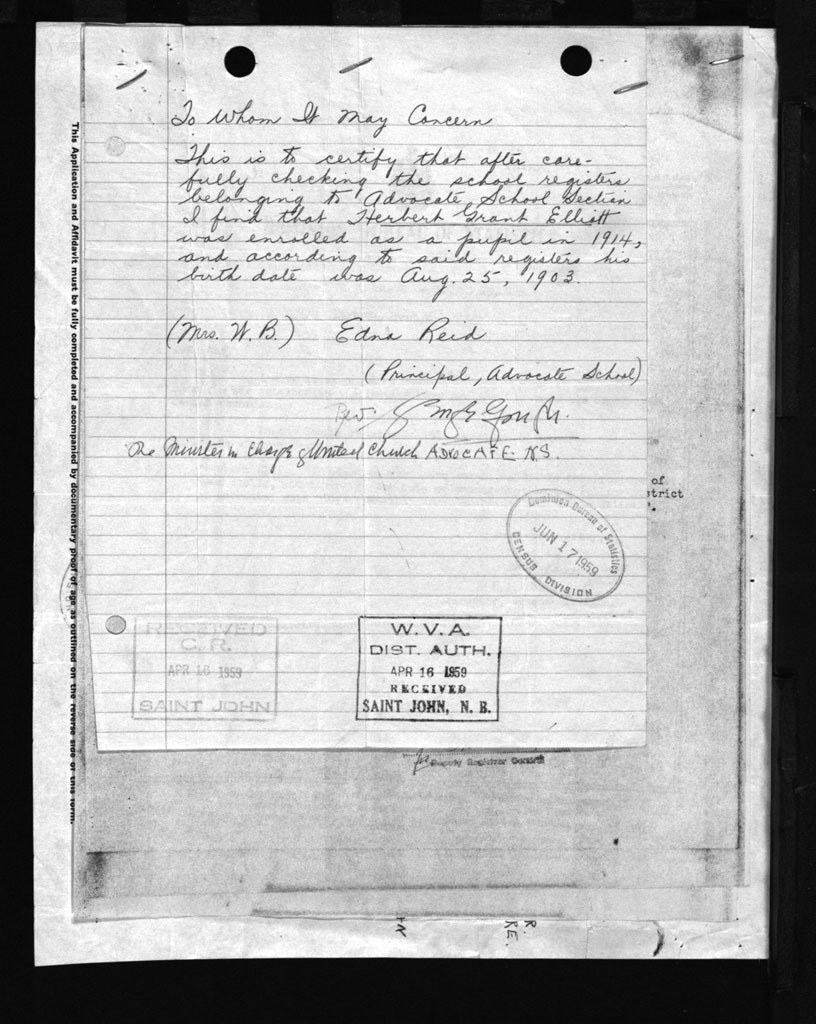 To Whom It May Concern
This is to certify that after care-
fully checking the school registers
belonging to Advocate School Section
I find that Herbert Grant Elliott
was enrolled as a pupil in 1914,
and according to said registers his
birth date was Aug. 25, 1903.
(Mrs. W. B.) Edna Reid
(Principal, Advocate School)
Rev.
The Minister in Charge of United Church ADVOCATE N.S.
of
strict
Dominion Bureau of Statistics
JUN 17 1959
CENSUS DIVISION
RECEIVED
C. R.
APR 16 1959
SAINT JOHN
W. V. A.
DIST. AUTH.
APR 16 1959
RECEIVED
SAINT JOHN, N. B.
for Deputy Registrar General
This Application and Affidavit must be fully completed and accompanied by documentary proof of age as outlined on the reverse side of this form.
R.
RE.